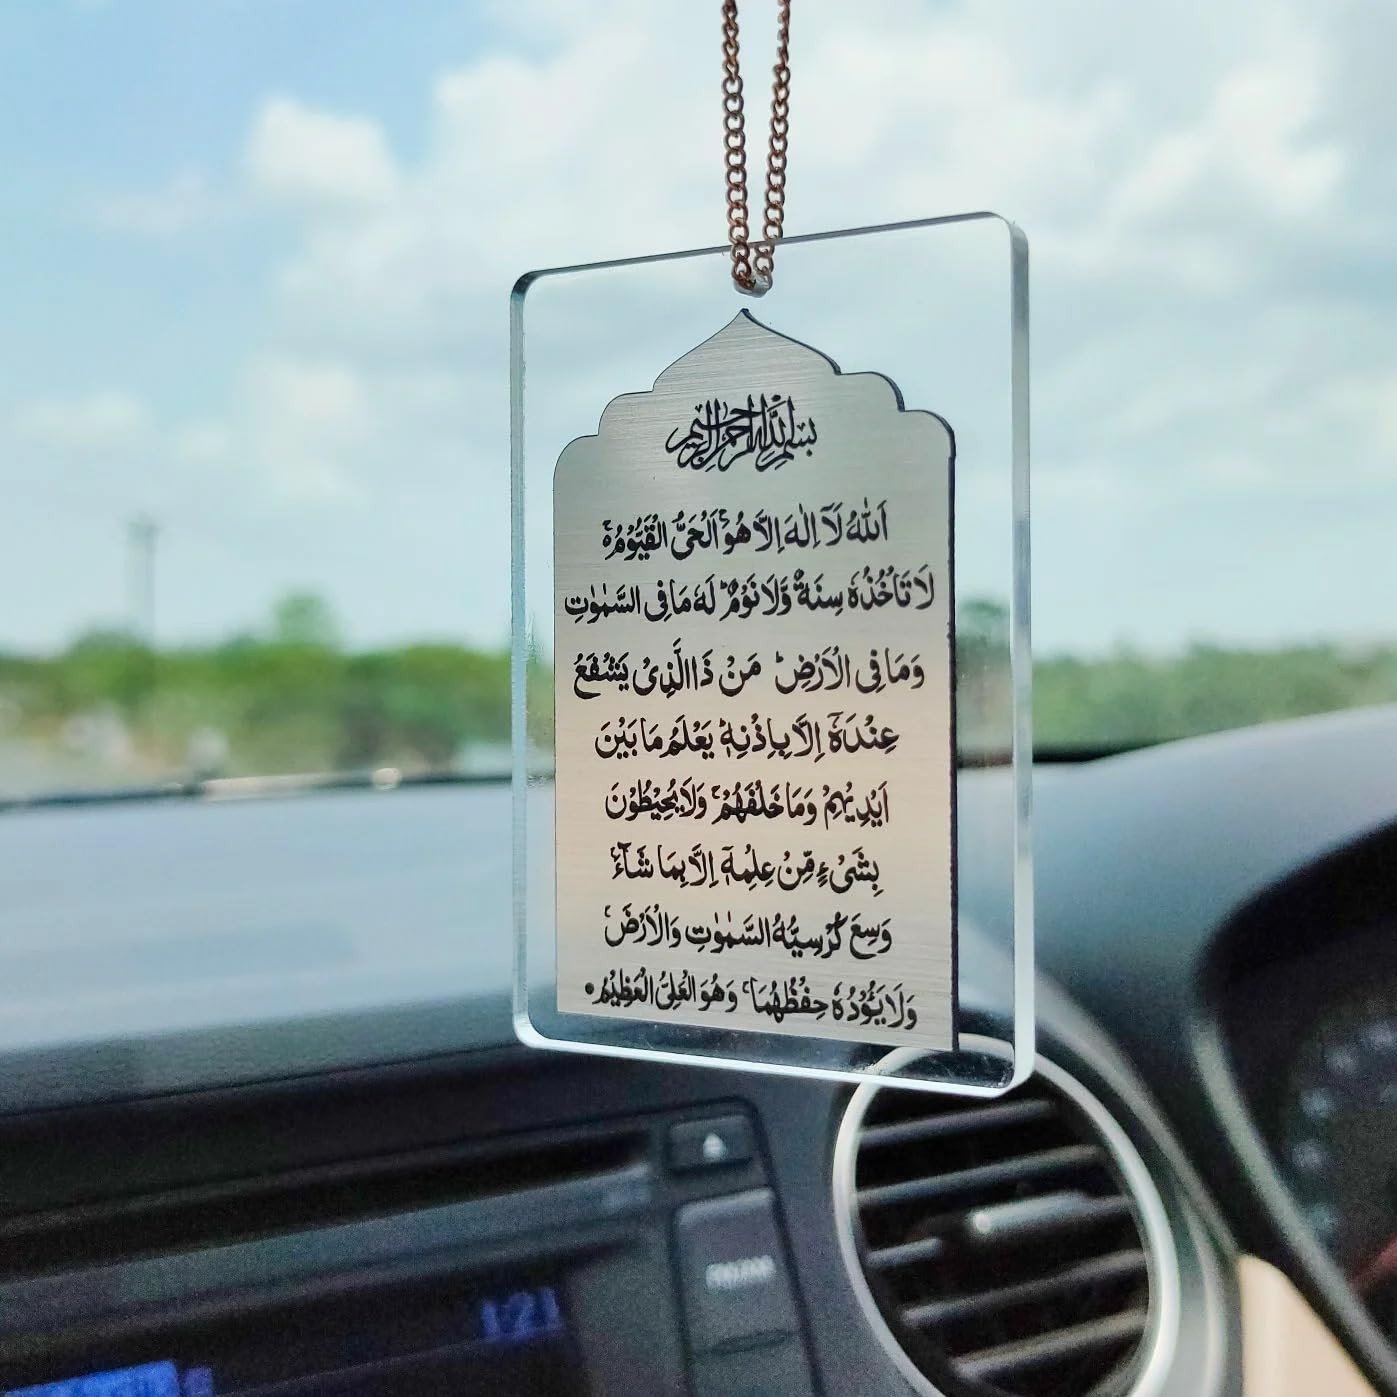 بسم الله الرحمن الرحيم
اَللّٰهُ لَاۤ اِلٰهَ اِلَّا هُوَۚ اَلْحَیُّ الْقَیُّوْمُ ەۚ
لَا تَاْخُذُهٗ سِنَةٌ وَّلَا نَوْمٌؕ لَهٗ مَا فِی السَّمٰوٰتِ
وَمَا فِی الْاَرْضِؕ مَنْ ذَا الَّذِیْ یَشْفَعُ
عِنْدَهٗۤ اِلَّا بِاِذْنِهٖؕ یَعْلَمُ مَا بَیْنَ
اَیْدِیْهِمْ وَمَا خَلْفَهُمْۚ وَلَا یُحِیْطُوْنَ
بِشَیْءٍ مِّنْ عِلْمِهٖۤ اِلَّا بِمَا شَآءَۚ
وَسِعَ كُرْسِیُّهُ السَّمٰوٰتِ وَالْاَرْضَۚ
وَلَا یَـُٔوْدُهٗ حِفْظُهُمَاۚ وَهُوَ الْعَلِیُّ الْعَظِیْمُ
1:21